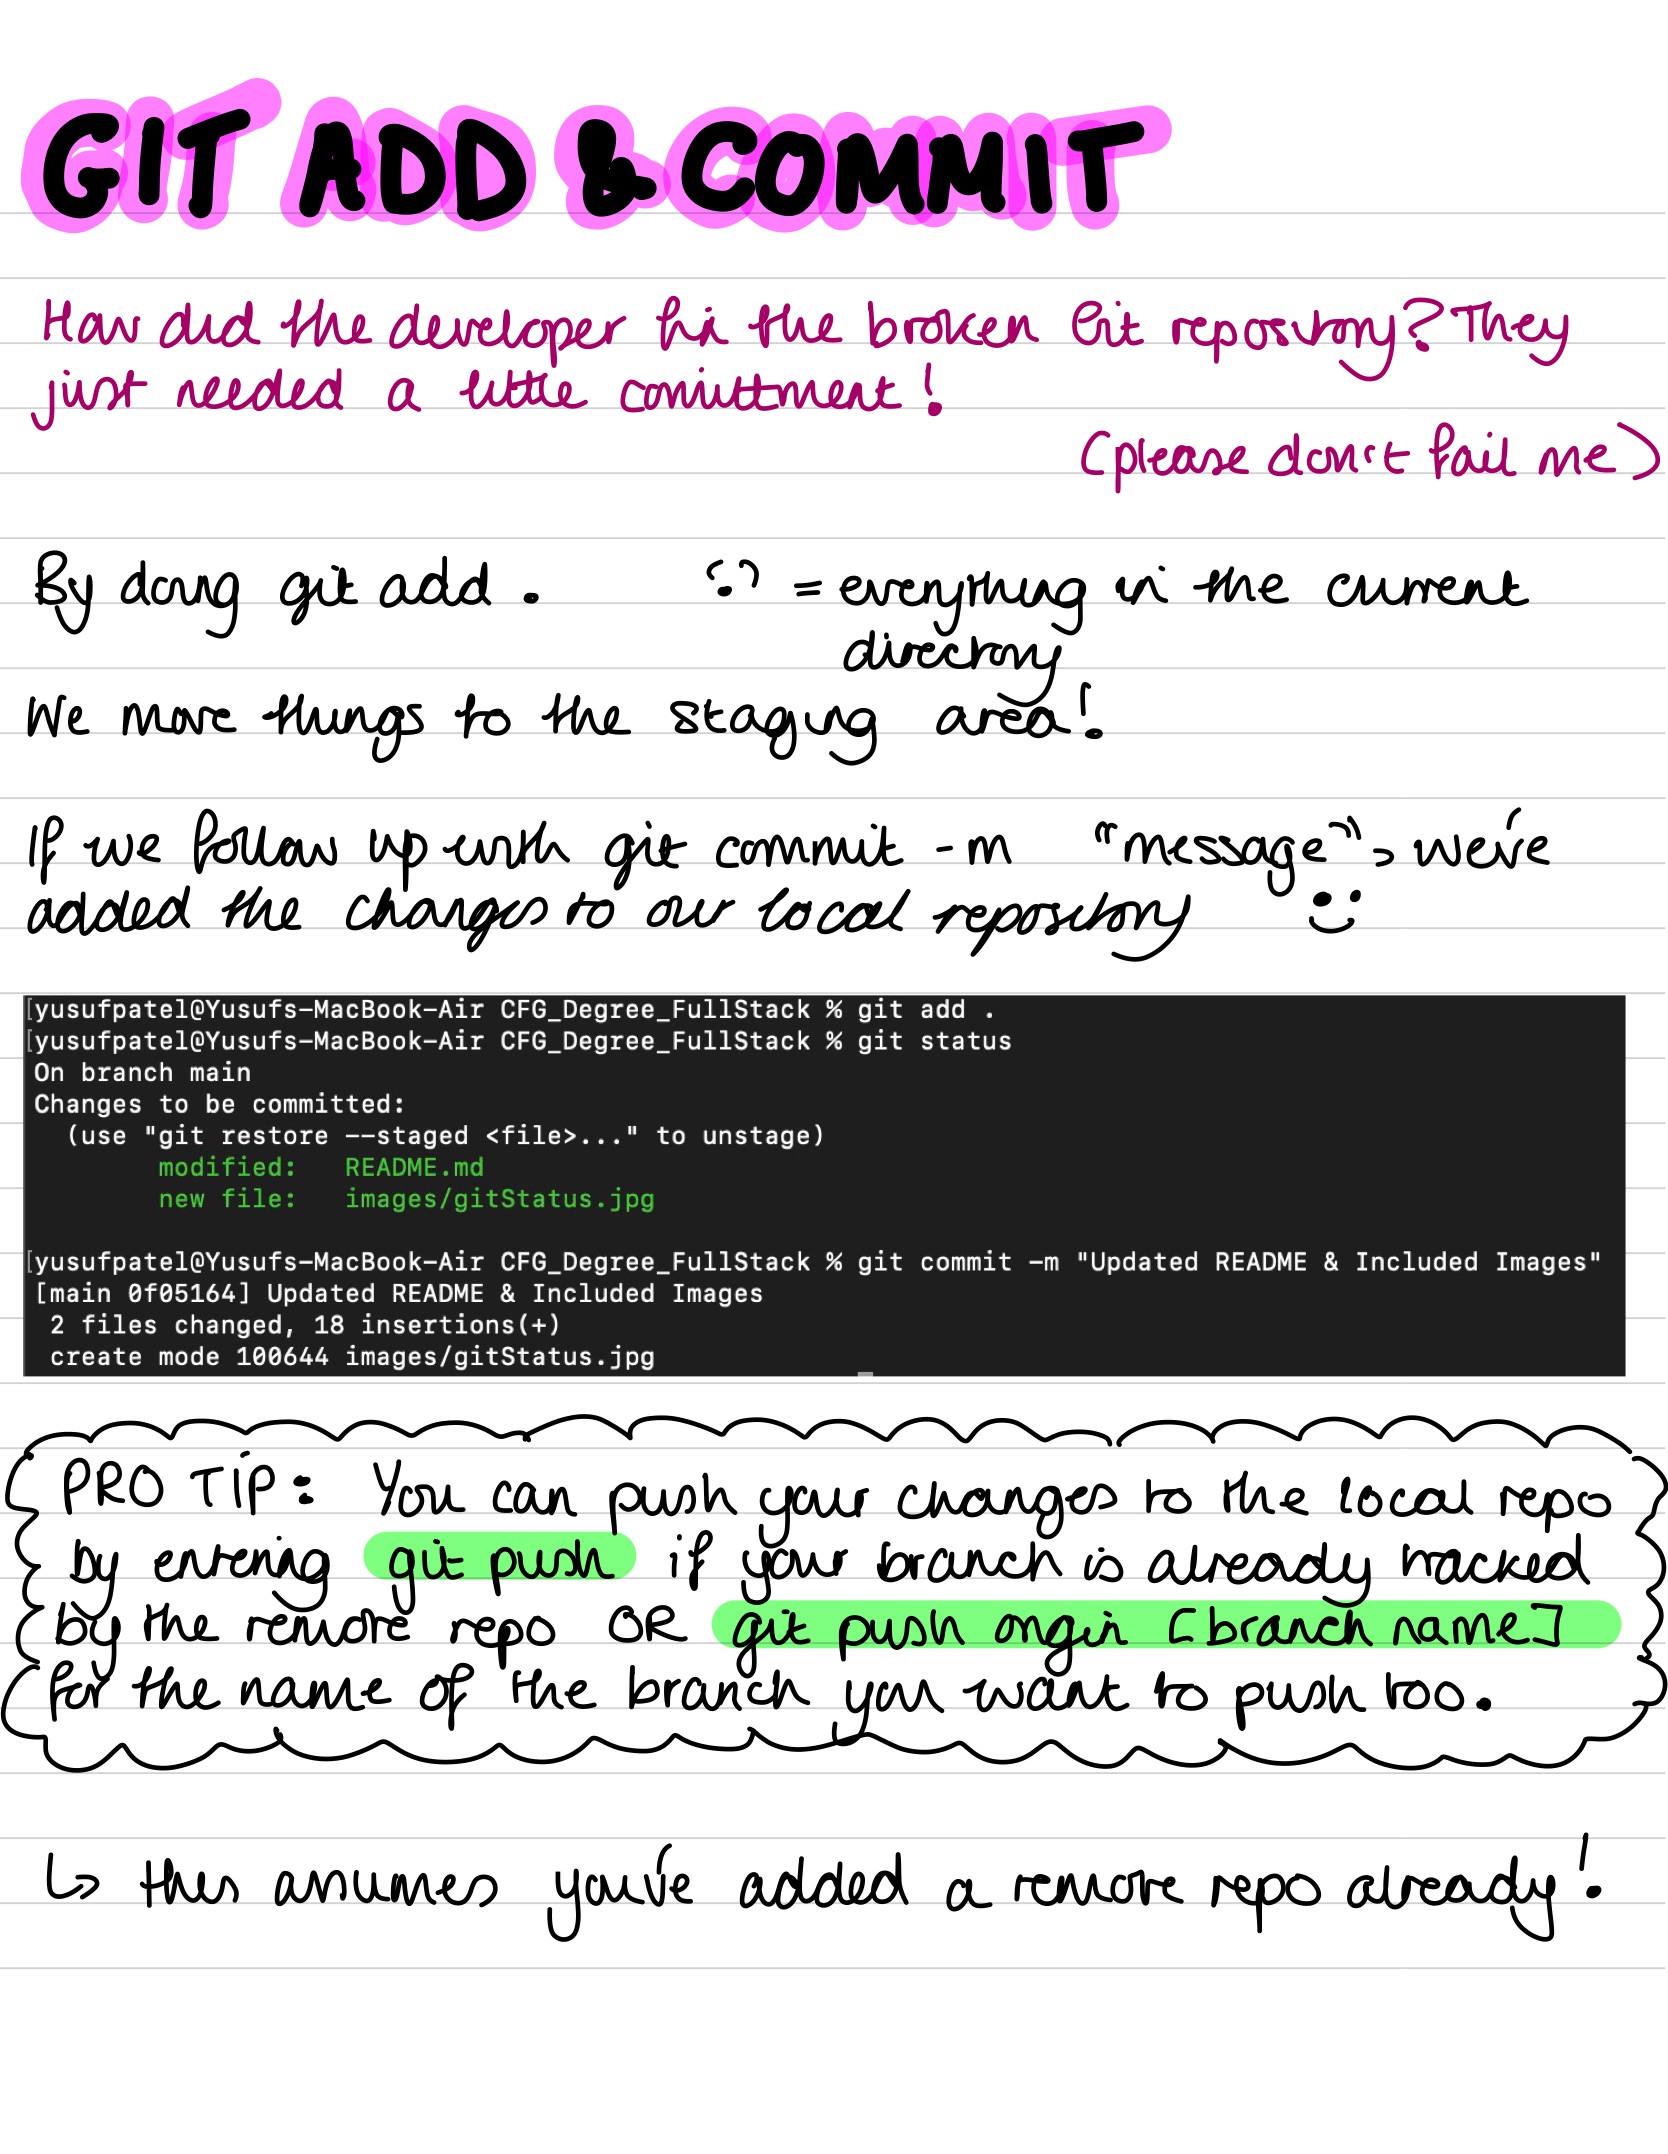 GIT ADD & COMMIT
How did the developer fix the broken Git repository? They
just needed a little comittment!
(please don't fail me)
By doing git add . "." = everything in the current
directory
We move things to the staging area!
If we follow up with git commit -m "message", we've
added the changes to our local repository
[yusufpatel@Yusufs-MacBook-Air CFG_Degree_FullStack % git add .
[yusufpatel@Yusufs-MacBook-Air CFG_Degree_FullStack % git status
On branch main
Changes to be committed:
  (use "git restore --staged <file>..." to unstage)
        modified:   README.md
        new file:   images/gitStatus.jpg
[yusufpatel@Yusufs-MacBook-Air CFG_Degree_FullStack % git commit -m "Updated README & Included Images"
[main 0f05164] Updated README & Included Images
 2 files changed, 18 insertions(+)
 create mode 100644 images/gitStatus.jpg
PRO TIP: You can push your changes to the local repo
by entering git push if your branch is already tracked
by the remote repo OR git push origin [branch name]
for the name of the branch you want to push too.
↳ this assumes you've added a remote repo already!